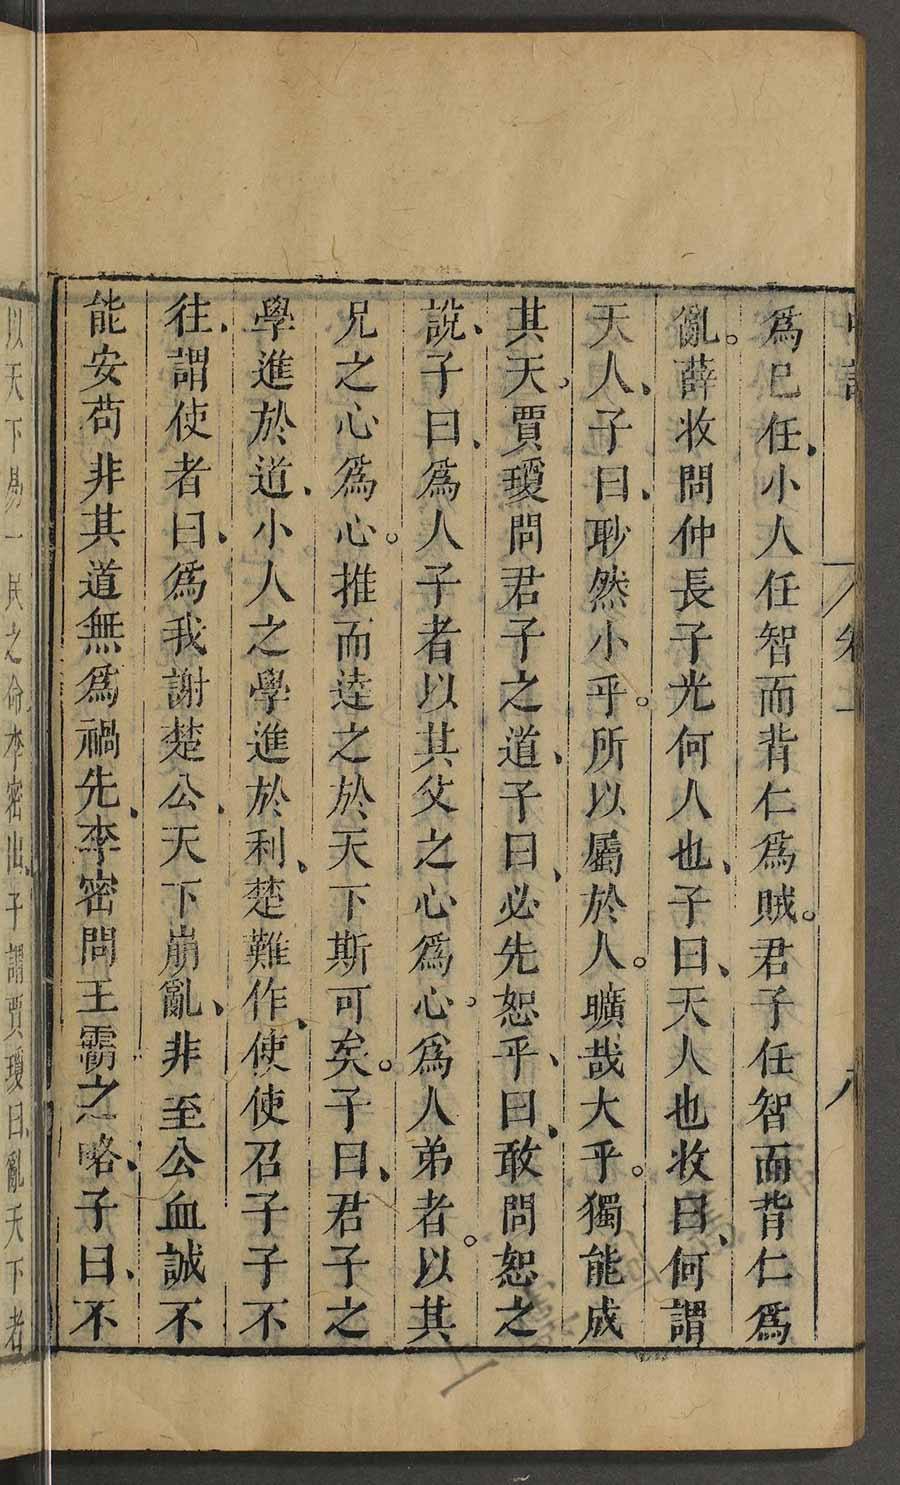 爲已任、小人任智而背仁爲賊。君子任智而背仁爲
亂。薛收問仲長子光何人也、子曰、天人也收曰、何謂
天人、子曰、眇然小乎。所以屬於人。曠哉大乎。獨能成
其天。賈瓊問君子之道、子曰、必先恕乎、曰、敢問恕之
說、子曰、爲人子者以其父之心爲心。爲人弟者。以其
兄之心爲心。推而逹之於天下斯可矣。子曰、君子之
學進於道、小人之學進於利、楚難作、使使召子子不
往、謂使者曰、爲我謝楚公、天下崩亂、非至公血誠不
能安苟非其道無爲禍先、李密問王霸之略、子曰、不
以天下易一民之命、李密出、子謂賈瓊曰、亂天下者